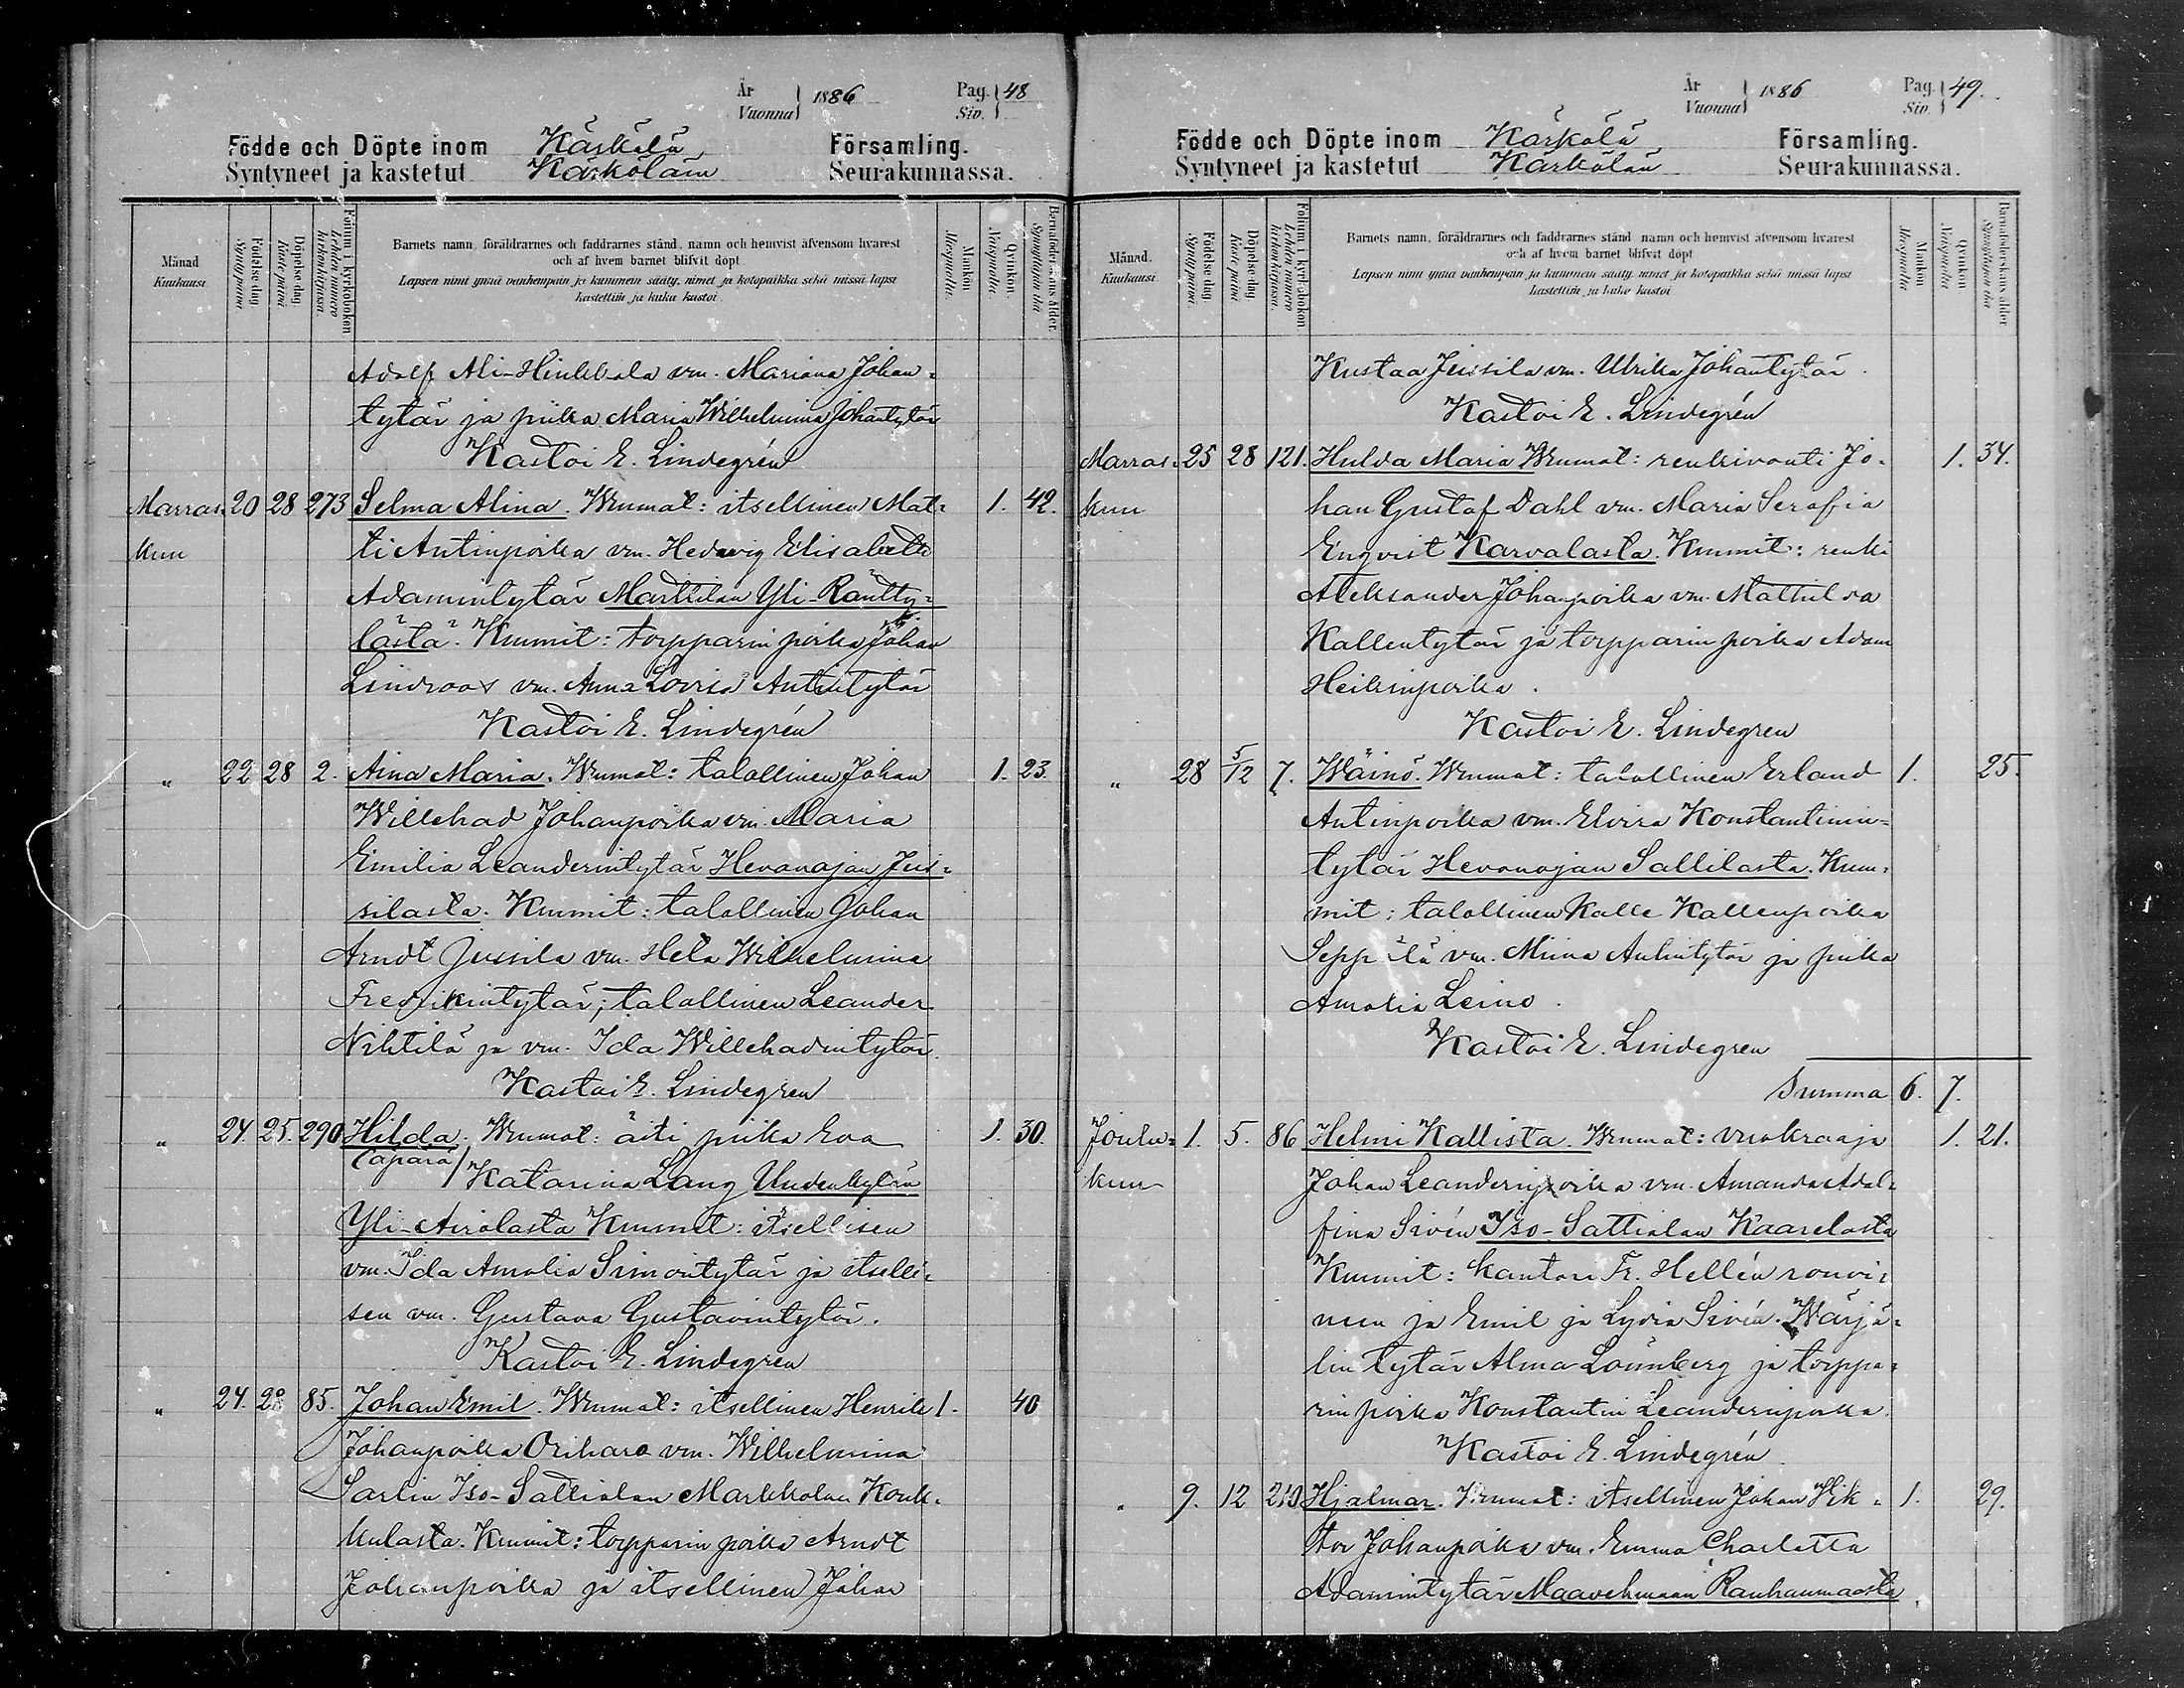 År
Vuonna 1886 Pag. 48
Siv.
Födde och Döpte inom Kärkölä Församling.
Syntyneet ja kastetut Kärkölän Seurakunnassa.
Månad
Kuukausi
Födelse dag.
Syntypäivä
Döpelse dag.
Kaste päivä
Folium i kyrkoboken
Lehden numero kirkonkirjassa
Barnets namn, föräldrarnes och faddrarnes stånd, namn och hemvist äfvensom hvarest
och af hvem barnet blifvit döpt
Lapsen nimi ynnä vanhempain ja kummein sääty, nimet ja kotopaikka sekä missä lapsi
kastettiin ja kuka kastoi
Mankön
Miespuolia.
Qvinkön.
Vaimopuolia.
Barnaföderskans ålder.
Synnyttäjän ikä
Adolf Ali-Hinkkala vm. Mariana Johan-
tytär ja piika Maria Wilhelmina Johantytär
Kastoi E. Lindegrén
Marras- 20 28 273 Selma Alina. Wnmat: itsellinen Mat- 1. 42.
kuu ti Antinpoika vm. Hedvig Elisabeth
Adamintytär Marttilan Yli-Räntty-
lästä. Kummit: torpparin poika Johan
Lindroos vm. Anna Lovisa Antintytär
Kastoi E. Lindegrén
" 22 28 2. Aina Maria. Wnmat: talollinen Johan 1. 23.
Willehad Johanpoika vm. Maria
Emilia Leanderintytär Hevonojan Jus-
silasta. Kummit: talollinen Johan
Arndt Jussila vm. Heta Wilhelmina
Fredrikintytär; talollinen Leander
Nihtilä ja vm. Ida Willehadintytär.
Kastoi E. Lindegren
" 24. 25. 290 Hilda. Wnmat: äiti piika Eva 1. 30.
(äpärä/ Katarina Lang Uudenkylän
Yli-Airolasta Kummit: itsellisen
vm. Ida Amalia Simontytär ja itselli-
sen vm. Gustava Gustavintytär.
Kastoi E. Lindegren
" 24. 28 85. Johan Emil. Wnmat: itsellinen Henrik 1. 40
Johanpoika Orihara vm. Wilhelmina
Sarlin Iso-Sattialan Markkolan Kouk-
kulasta. Kummit: torpparin poika Arndt
Johanpoika ja itsellinen Johan
År
Vuonna 1886 Pag. 49.
Siv.
Födde och Döpte inom Kärkölä Församling.
Syntyneet ja kastetut Kärkölän Seurakunnassa.
Månad.
Kuukausi
Födelse dag
Syntypäivä.
Döpelse dag
Kaste päivä
Folium i kyrkoboken
Lehden numero kirkonkirjassa.
Barnets namn, föräldrarnes och faddrarnes stånd namn och hemvist äfvensom hvarest
och af hvem barnet blifvit döpt
Lapsen nimi ynnä vanhempain ja kummein sääty, nimet ja kotopaikka sekä missä lapsi
kastettiin ja kuka kastoi
Mankön
Miespuolia
Qvinkön
Vaimopuolia
Barnaföderskans ålder
Synnyttäjän ikä
Kustaa Jussila vm. Ulrika Johantytär.
Kastoi E. Lindegrén
Marras- 25 28 121. Hulda Maria Wnmat: renkivouti Jo- 1. 34.
kuu han Gustaf Dahl vm. Maria Serafia
Enqvist Karvalasta. Kummit: renki
Aleksander Johanpoika vm. Mathilda
Kallentytär ja torpparin poika Adam
Heikinpoika.
Kastoi E. Lindegren
" 28 5/12 7. Wäinö. Wnmat: talollinen Erland 1. 25.
Antinpoika vm. Elvira Konstantinin-
tytär Hevonojan Sallilasta. Kum-
mit: talollinen Kalle Kallenpoika
Seppälä vm. Miina Antintytär ja piika
Amalia Leino.
Kastoi E. Lindegren
Summa 6. 7.
Joulu- 1. 5. 86 Helmi Kallista. Wnmat: vuokraaja 1. 21.
kuu Johan Leanderinpoika vm. Amanda Adol-
fina Sivén Iso-Sattialan Kaarelasta
Kummit: kanttori Fr. Hellén rouvi-
neen ja Emil ja Lydia Sivén. Wärjä-
lin tytär Alma Lönnberg ja torppa-
rin poika Konstantin Leanderinpoika.
Kastoi E. Lindegrén
" 9. 12 219. Hjalmar. Wnmat: itsellinen Johan Wik- 1. 29.
tor Johanpoika vm. Emma Charlotta
Adamintytär Maavehmaan Rauhanmaasta